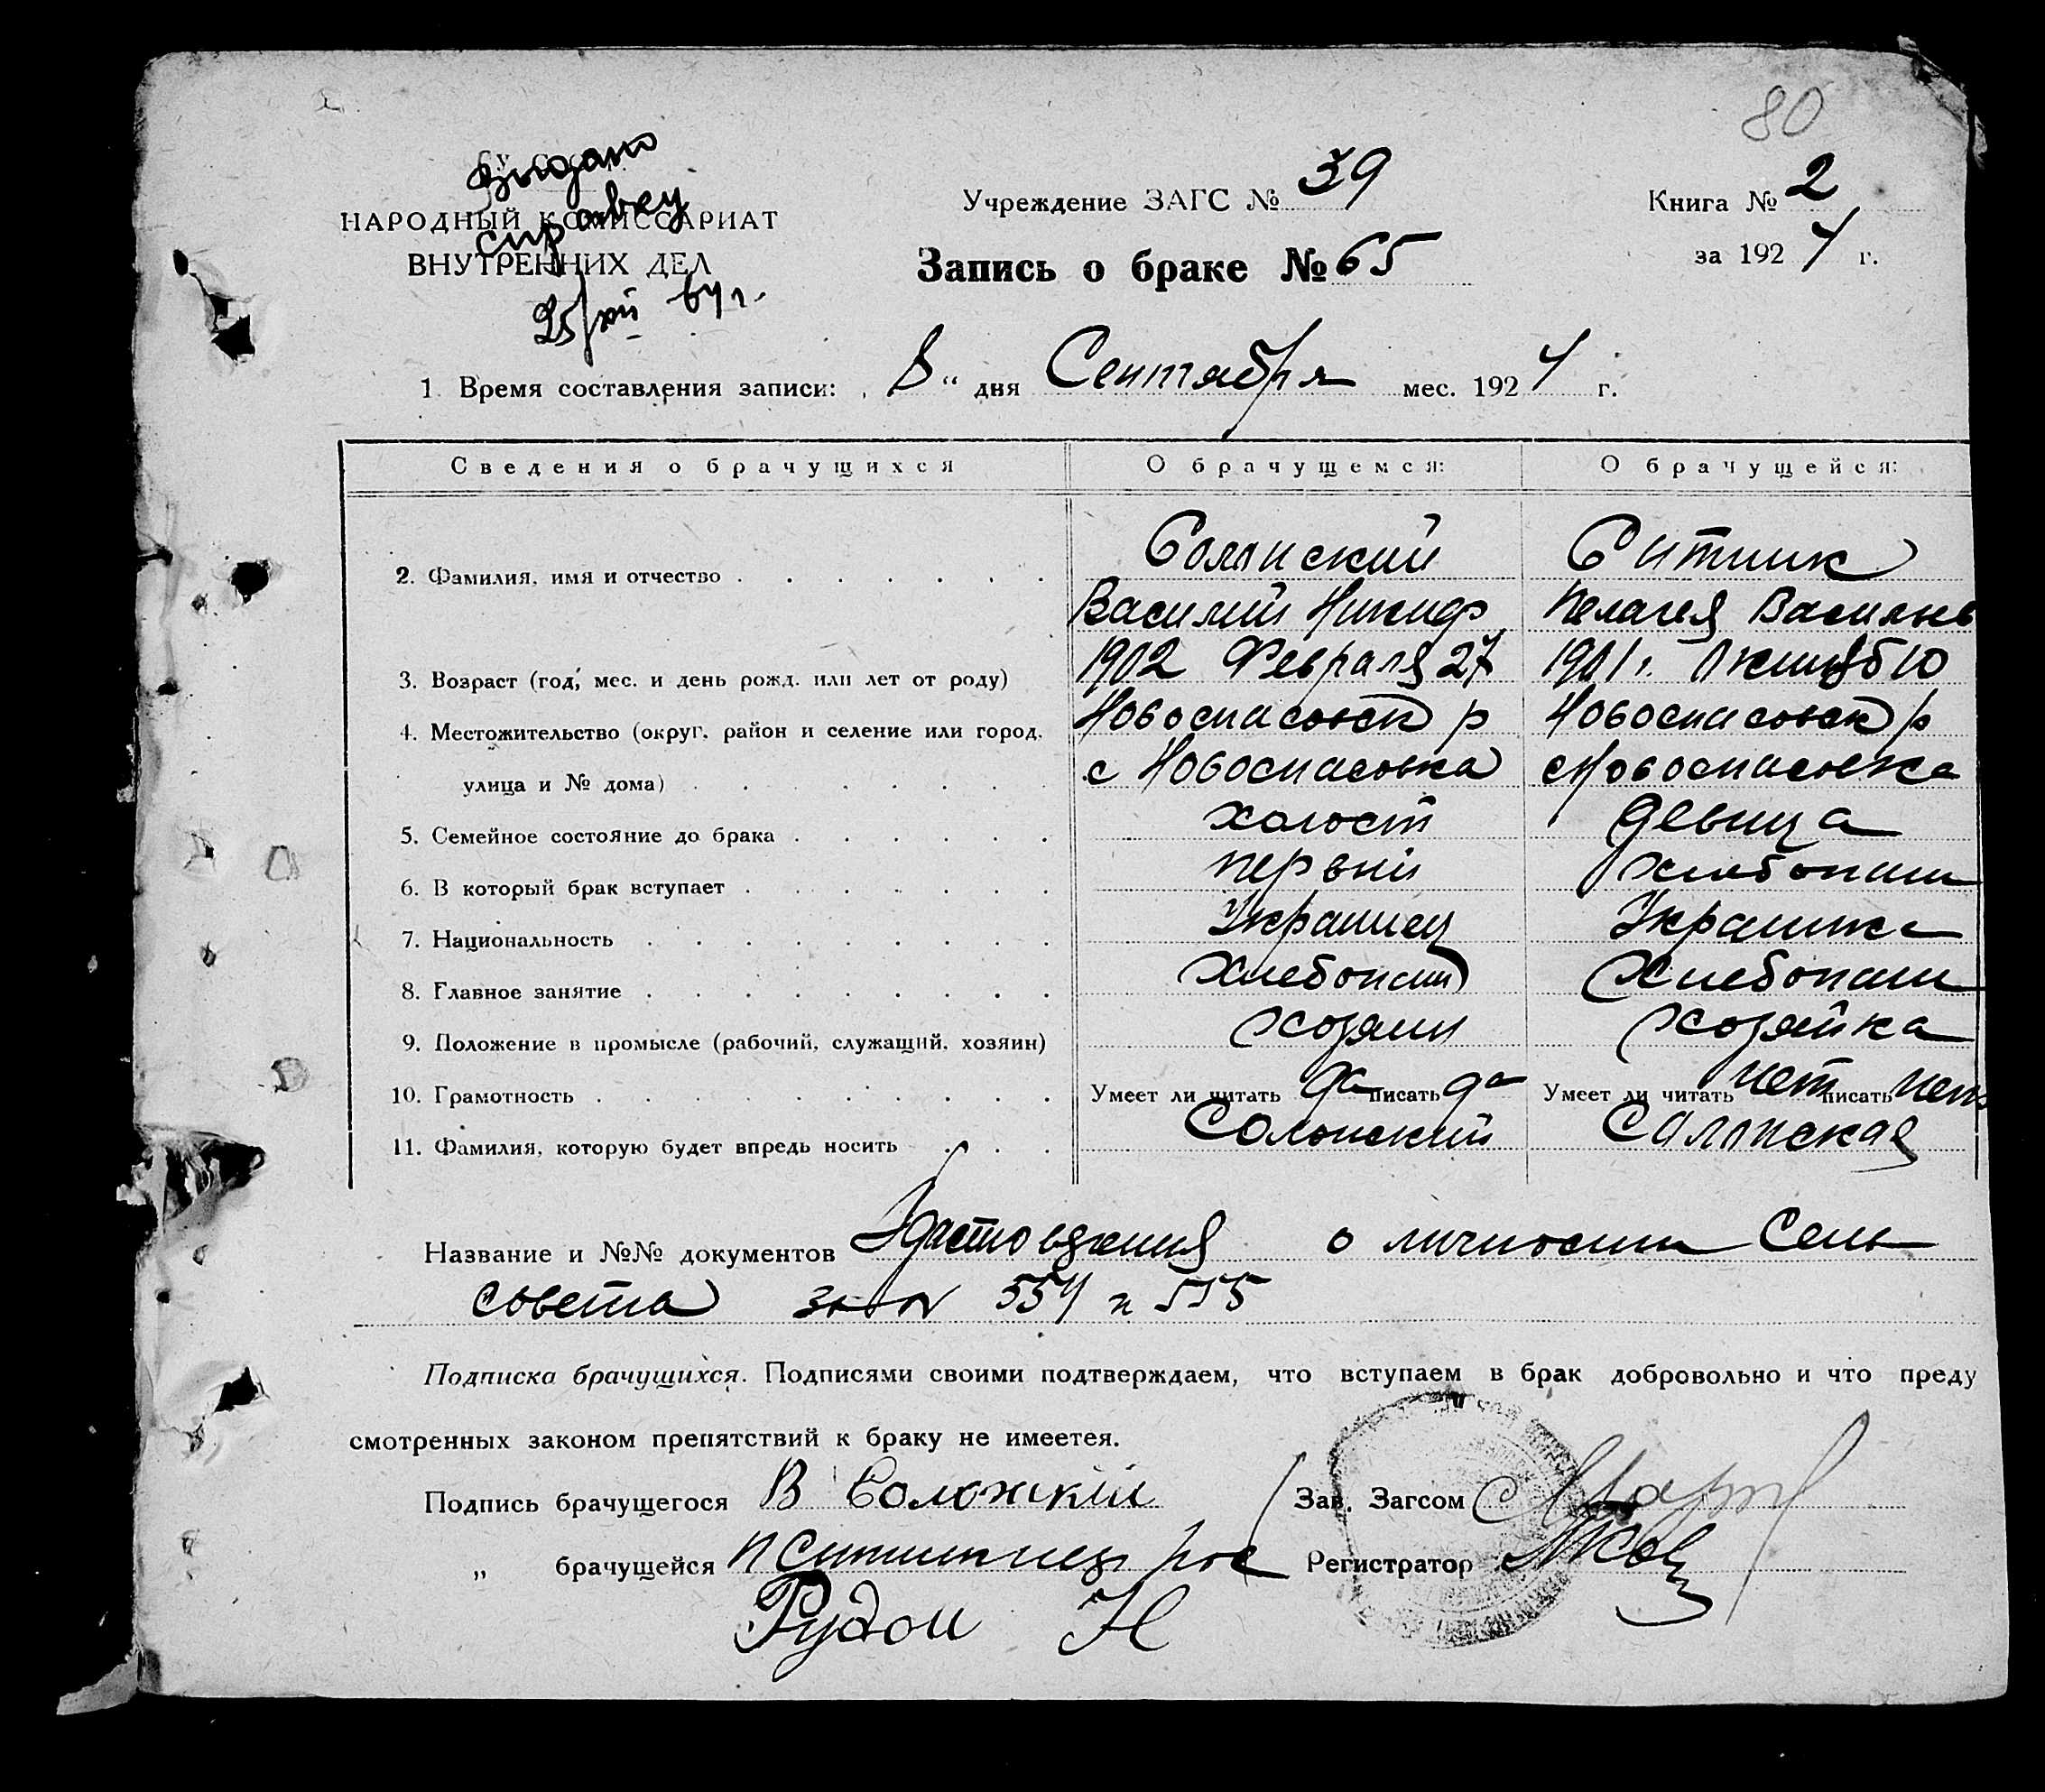 80
Выдано
справку
25/XII 64 г.
НАРОДНЫЙ КОМИССАРИАТ
ВНУТРЕННИХ ДЕЛ
Учреждение ЗАГС № 39
Книга № 2
за 1924 г.
Запись о браке № 65
1. Время составления записи: 8 " дня Сентября мес. 1924 г.
Сведения о брачущихся О брачущемся: О брачущейся:
2. Фамилия, имя и отчество Солонский Ситник
Василий Никиф Пелагея Васильев
3. Возраст (год, мес. и день рожд. или лет от роду) 1902 Февраля 27 1901 г. Октяб 10
4. Местожительство (округ, район и селение или город, Новоспасовск р Новоспасовск р
улица и № дома) с Новоспасовка с Новоспасовка
5. Семейное состояние до брака холост девица
6. В который брак вступает первий хлебопаш
7. Национальность Украинец Украинка
8. Главное занятие Хлебопаш Хлебопаш
9. Положение в промысле (рабочий, служащий, хозяин) хозяин хозяйка
10. Грамотность Умеет ли читать да писать да Умеет ли читать нет писать нет
11. Фамилия, которую будет впредь носить Солонский Солонская
Название и №№ документов о личности Сель
совета за № 554 и 555
Подписка брачущихся. Подписями своими подтверждаем, что вступаем в брак добровольно и что преду
смотренных законом препятствий к браку не имеется.
Подпись брачущегося В Солонскій Зав. Загсом
„ брачущейся П Ситник Регистратор
Рудои Н